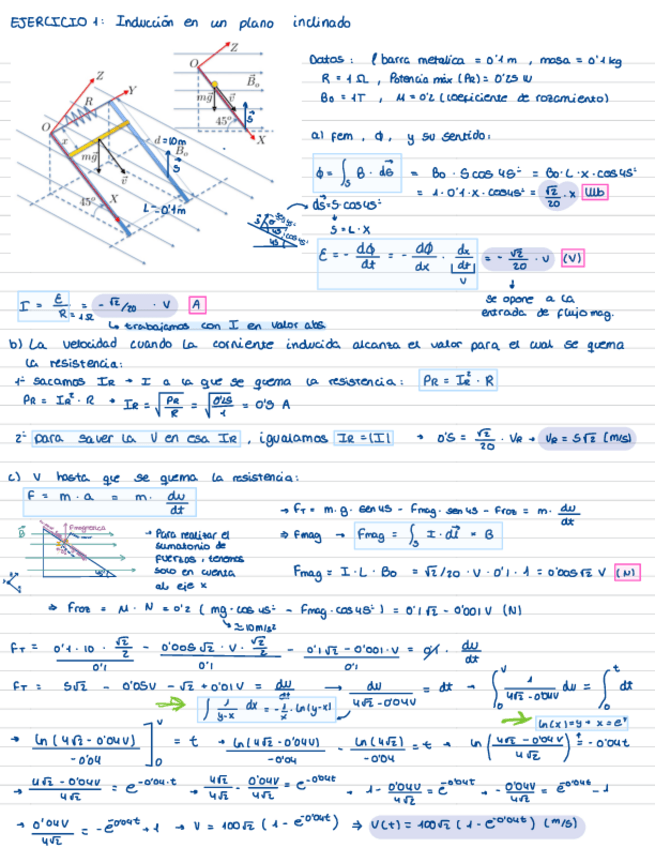 EJERCICIO 1: Inducción en un plano inclinado
Datos: l barra metalica = 0'1m, masa = 0'1kg
R = 1 Ω, Potencia máx (PR) = 0'25 W
B₀ = 1T, μ = 0'2 (coeficiente de rozamiento)
Z
Y
R
O
x
mg⃗
v⃗
d = 10m
B⃗₀
S⃗
45°
X
L = 0'1m
Z
O
B⃗₀
mg⃗
v⃗
S⃗
45°
X
a) fem, ϕ, y su sentido:
ϕ = ∫_S B · dS⃗ = B₀ · S cos 45º = B₀ · L · x · cos45º
= 1 · 0'1 · x · cos45º = √2/20 · x Wb
dS⃗ = S · cos45º
S = L · X
ε = - dϕ/dt = - dϕ/dx · dx/dt = - √2/20 · v (V)
v
se opone a la
entrada de flujo mag.
I = ε/R = - √2/20 · v A
R = 1Ω
↳ trabajamos con I en valor abs.
b) La velocidad cuando la corriente inducida alcanza el valor para el cual se quema
la resistencia:
1º sacamos IR → I a la que se quema la resistencia: PR = IR² · R
PR = IR² · R → IR = √(PR/R) = √(0'25/1) = 0'5 A
2º para saver la V en esa IR, igualamos IR = |I| → 0'5 = √2/20 · VR → VR = 5√2 (m/s)
c) V hasta que se quema la resistencia:
F = m · a = m · dv/dt
→ FT = m · g · sen 45 - Fmag · sen 45 - Froz = m · dv/dt
→ Para realizar el
sumatorio de
fuerzas, tenemos
solo en cuenta
al eje x
⇒ Fmag → Fmag = ∫_S I · dl⃗ × B
Fmag = I · L · B₀ = √2/20 · v · 0'1 · 1 = 0'005√2 v (N)
⇒ Froz = μ · N = 0'2 (mg · cos 45º - Fmag · cos 45º) = 0'1√2 - 0'001v (N)
↳ ≈ 10m/s²
FT = 0'1 · 10 · √2/2 / 0'1 - 0'005√2 · v · √2/2 / 0'1 - 0'1√2 - 0'001 · v / 0'1 = 0'1 · dv/dt
FT = 5√2 - 0'05v - √2 + 0'01v = dv/dt → dv/(4√2 - 0'04v) = dt → ∫₀^v 1/(4√2 - 0'04v) dv = ∫₀^t dt
∫ 1/(y-x) dx = - 1/x · ln(y-x)
ln(x) = y → x = e^y
→ ln(4√2 - 0'04v)/-0'04 ]₀^v = t → ln(4√2 - 0'04v)/-0'04 - ln(4√2)/-0'04 = t → ln((4√2 - 0'04v)/4√2) = -0'04t
→ (4√2 - 0'04v)/4√2 = e^(-0'04·t) → 4√2/4√2 - 0'04v/4√2 = e^(-0'04t) → 1 - 0'04v/4√2 = e^(-0'04t) → - 0'04v/4√2 = e^(-0'04t) - 1
→ 0'04v/4√2 = -e^(-0'04t) + 1 → v = 100√2 (1 - e^(-0'04t)) ⇒ v(t) = 100√2 (1 - e^(-0'04t)) (m/s)